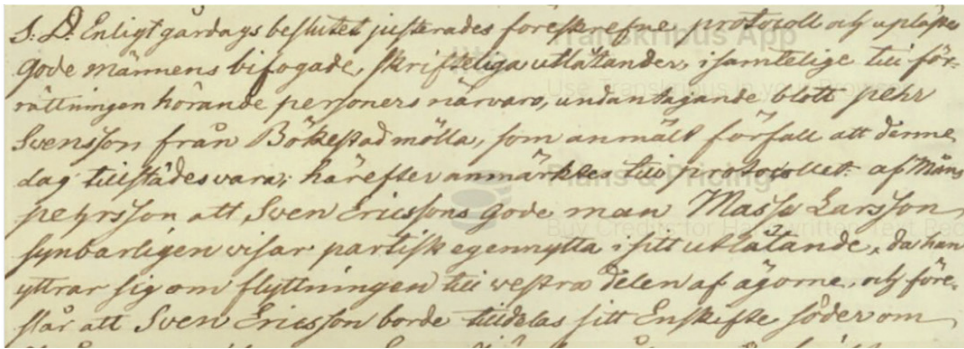 S: D: Enligt gårdags beslutet justerades föreskrefne protocoll och uplästes
Gode männens bifogade, skrifteliga utlåtanden, i samtelige till för-
rättningen hörande personers närvaro, undantagande blott pehr
Svensson från Bökestad mölla, som anmält förfall att denne
dag tillstädesvara; härefter anmärktes till protocollet af Måns
pehrsson att Sven Ericssons Gode man Masse Larsson
synbarligen visar partisk egennytta i sitt utlåtande, då han
yttrar sig om flyttningen till westra delen af ägorne, och före-
slår att Sven Ericsson borde tilldelas sitt Enskifte söder om